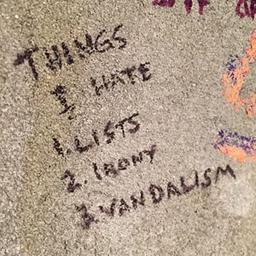 THINGS
I HATE
1. LISTS
2. IRONY
3. VANDALISM